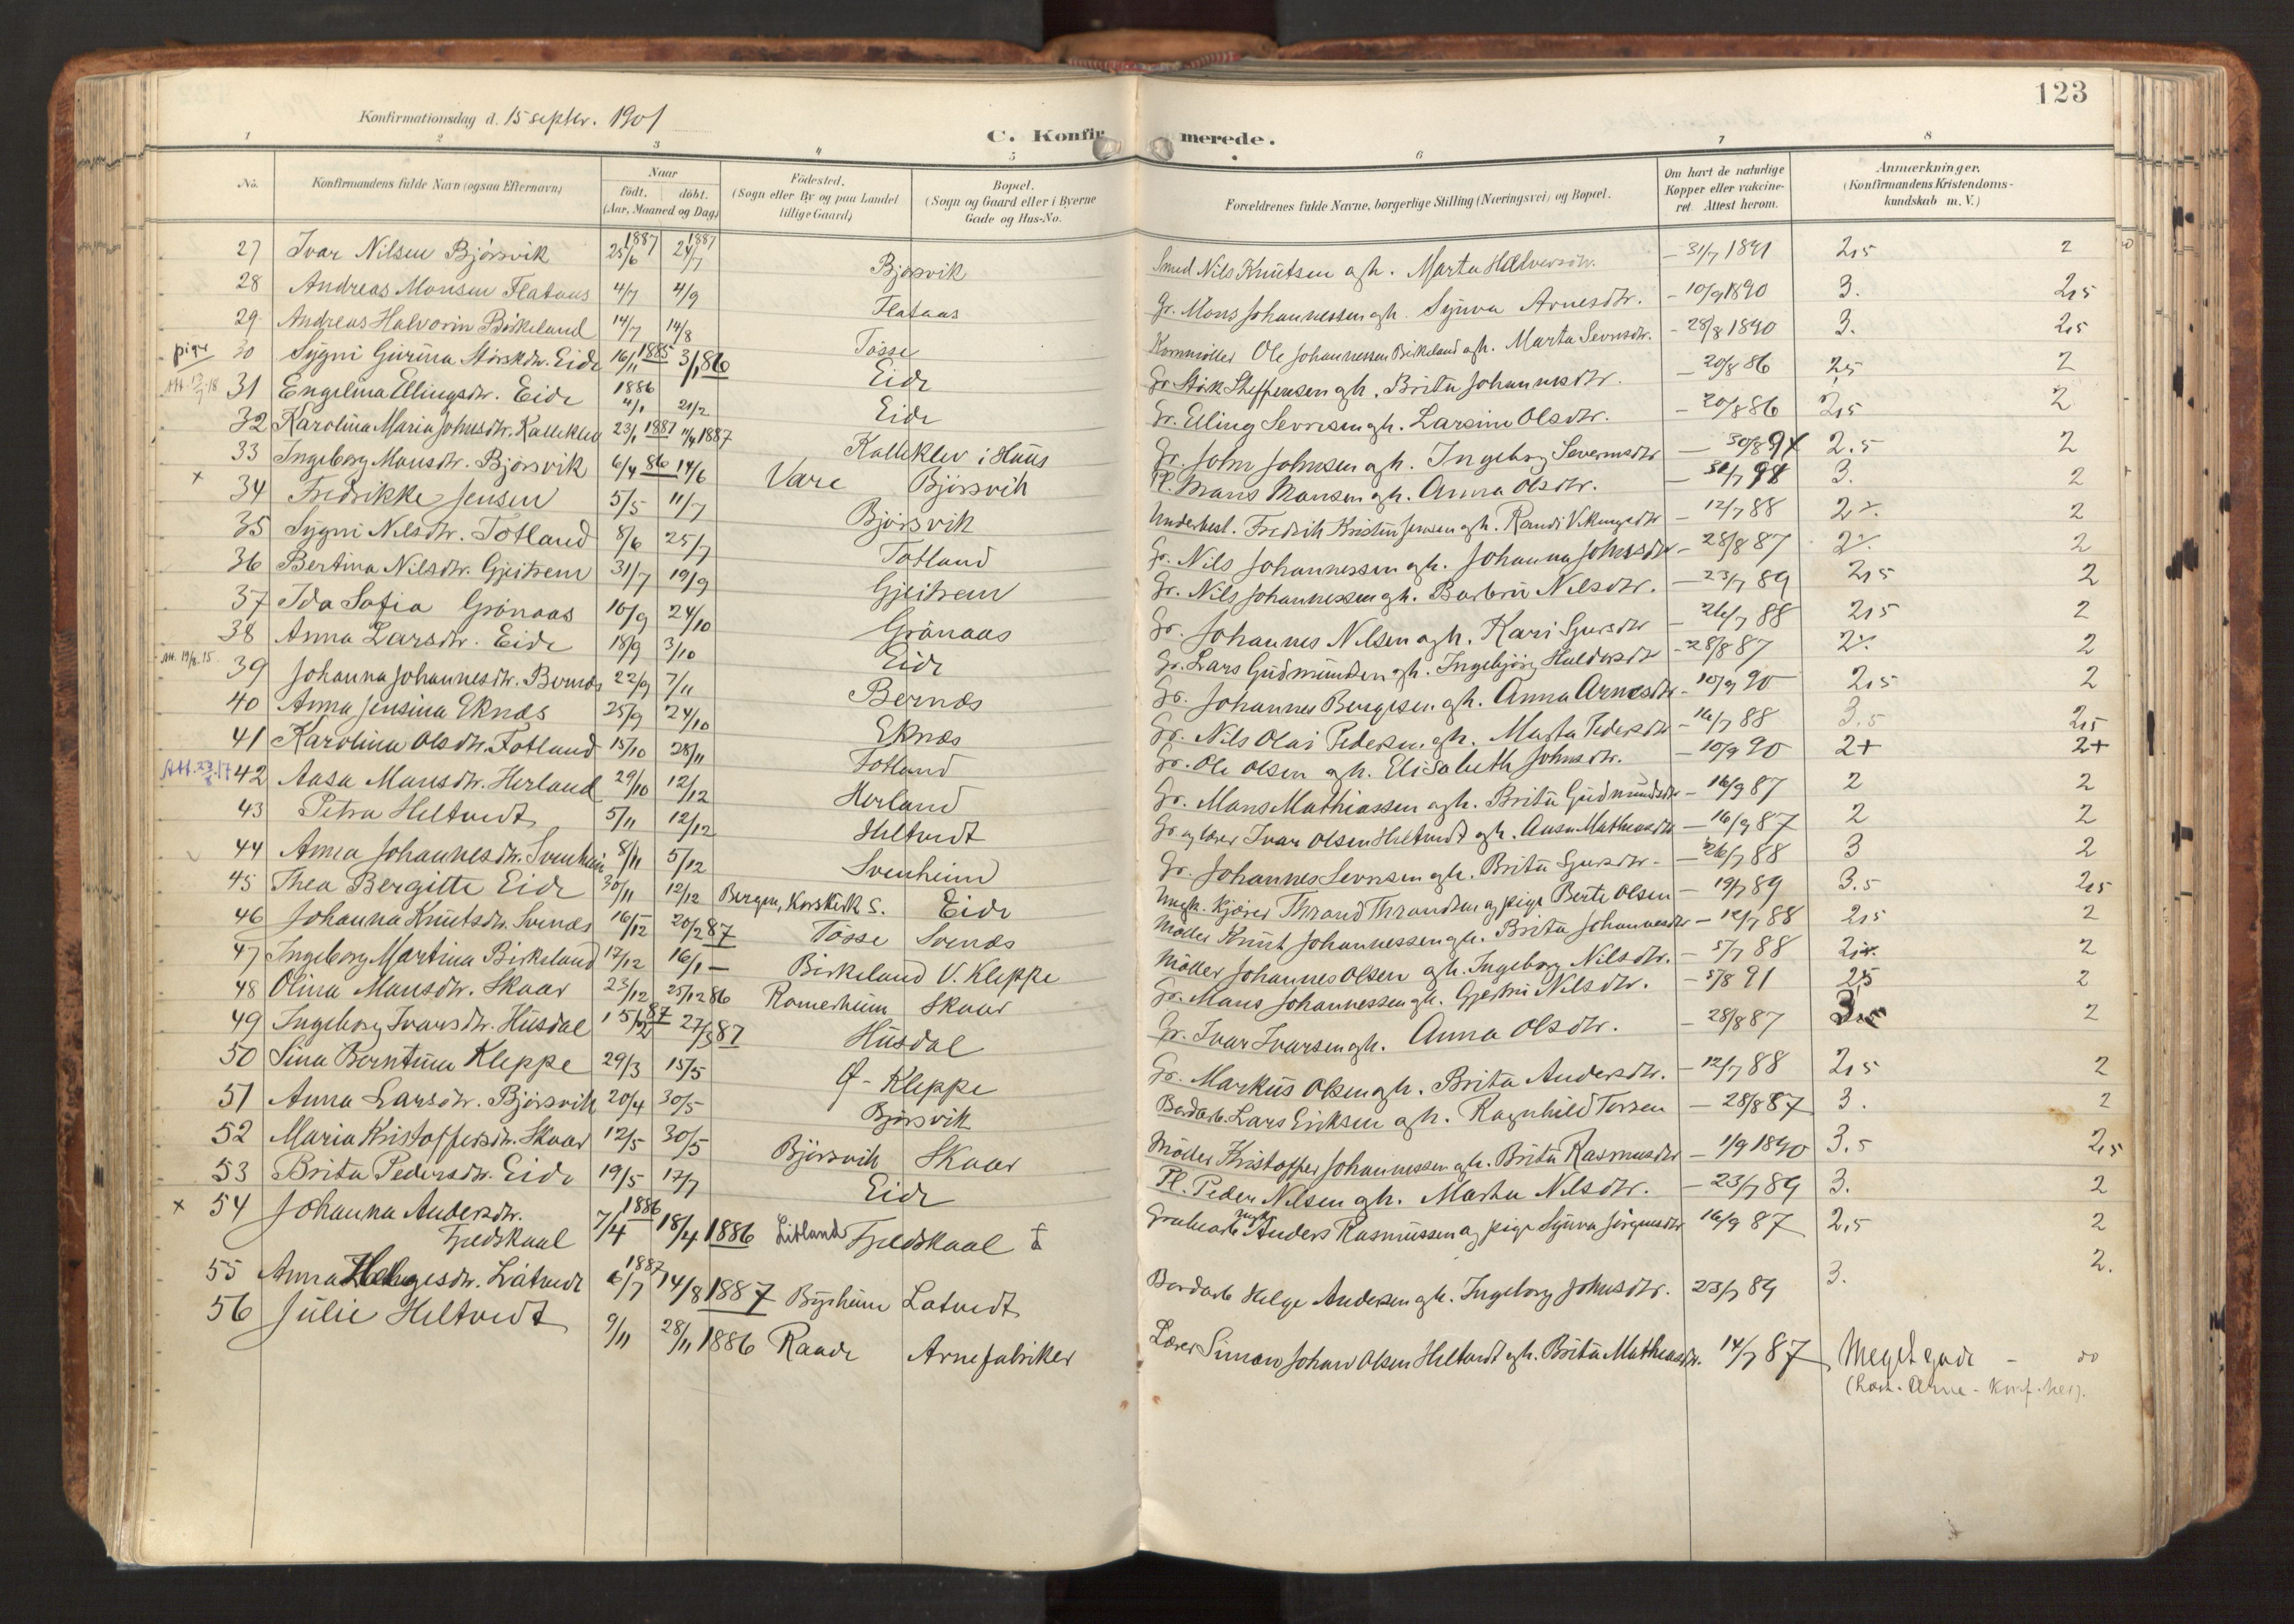 123
Konfirmationsdag d. 15 septbr. 1901
C. Konfirmerede.
1 2 3 4 5 6 7 8
No. Konfirmandens fulde Navn (ogsaa Efternavn) Naar født. døbt. (Aar, Maaned og Dag) Fødested. (Sogn eller By og paa Landet tillige Gaard) Bopæl. (Sogn og Gaard eller i Byerne Gade og Hus-No. Forældrenes fulde Navne, borgerlige Stilling (Næringsvei) og Bopæl. Om havt de naturlige Kopper eller vakcineret. Attest herom. Anmærkninger. (Konfirmandens Kristendomskundskab m. V.)
27 Ivar Nilsen Bjørsvik 1887 25/6 1887 24/7 Bjørsvik Smed Nils Knutsen og h. Marta Halvorsdtr. – 31/7 1891 2,5 2
28 Andreas Monsen Flataas 4/7 4/9 Flataas Gr. Mons Johannessen og h. Synva Arnesdtr. – 10/9 1890 3. 2,5
29 Andreas Halvorin Birkeland 14/7 14/8 Tøsse Kornmøller Ole Johannessen Birkeland og h. Marta Sevrsdtr. – 28/8 1890 3. 2,5
pige 30 Sygni Gurina Størksdtr. Eide 16/11 1885 3/1 86 Eide Gr. Størk Steffensen og h. Brita Johannesdtr. – 20/8 86 2,5 2
31 Engelina Ellingsdtr. Eide 1886 4/1 21/2 Eide Gr. Elling Sevrinsen og h. Larsina Olsdtr. – 20/8 86 2,5 2
32 Karolina Maria Johnsdtr. Kalleklev 23/1 1887 11/4 1887 Kalleklev i Haus Gr. John Johnsen og h. Ingeborg Severinsdtr – 30/8 94 2.5 2
33 Ingeborg Monsdtr. Bjørsvik 6/4 86 14/6 Vare Bjørsvik Pl. Mons Monsen og h. Anna Olsdtr. – 3. 2
x 34 Fredrikke Jensen 5/5 11/7 Bjørsvik Underbest. Fredrik Kristin Jensen og h. Randi Vikingsdtr – 12/7 88 2
35 Sygni Nilsdtr. Totland 8/6 25/7 Totland Gr. Nils Johannessen og h. Johanna Johnsdtr – 28/8 87 2
36 Bertina Nilsdtr. Gjeitrem 31/7 19/9 Gjeitrem Gr. Nils Johannessen og h. Barbru Nilsdtr. – 23/7 89 2,5 2
37 Ida Sofia Grønaas 10/9 24/10 Grønaas Gr. Johannes Nilsen og h. Kari Sjursdtr – 26/7 88 2,5 2
38 Anna Larsdtr. Eide 18/9 3/10 Eide Gr. Lars Gudmundsen og h. Ingebjørg Haldorsdtr – 28/8 87 2
Att. 19/8.15. 39 Johanna Johannesdtr. Bernæs 22/9 7/11 Bernæs Gr. Johannes Bergesen og h. Anna Arnesdtr – 10/9 90 2,5 2
40 Anna Jensina Eknæs 25/9 24/10 Eknæs Gr. Nils Olai Pedersen og h. Marta Pedersdtr – 16/7 88 3.5 2,5
41 Karolina Olsdtr. Totland 15/10 28/11 Totland Gr. Ole Olsen og h. Elisabeth Johnsdtr. – 10/9 90 2+ 2+
42 Aasa Mansdtr. Herland 29/10 12/12 Herland Gr. Mans Mathiassen og h. Brita Gudmundsdtr – 16/9 87 2 2
43 Petra Heltvedt 5/11 12/12 Heltvedt Gr. og lærer Ivar Olsen Heltvedt og h. Aasa Mathiasdtr – 16/9 87 2 2
44 Anna Johannesdtr. Svenheim 8/11 5/12 Svenheim Gr. Johannes Sevrinsen og h. Brita Sjursdtr – 26/7 88 3 2
45 Thea Bergitte Eide 30/11 12/12 Bergen, Korskirk S. Eide Ungk. Kjører Thrond Throndsen og pige Berte Olsen – 19/7 89 3.5 2,5
46 Johanna Knutsdtr. Svenæs 16/12 20/2 87 Tøsse Svenæs Møller Knut Johannessen og h. Brita Johannesdtr – 12/7 88 2,5 2
47 Ingeborg Martina Birkeland 17/12 16/1 – Birkeland V. Kleppe Møller Johannes Olsen og h. Ingeborg Nilsdtr. – 5/7 88 2
48 Olina Mansdtr. Skaar 23/12 25/12 86 Romerheim Skaar Gr. Mans Johannessen og h. Gjertrui Nilsdtr. – 5/8 91 2,5 2
49 Ingeborg Ivarsdtr. Husdal 15/2 87 27/3 87 Husdal Gr. Ivar Ivarsen og h. Anna Olsdtr. – 28/8 87 3 2
50 Sina Berntina Kleppe 29/3 15/5 Ø-Kleppe Gr. Markus Olsen og h. Brita Andersdtr. – 12/7 88 2,5 2
51 Anna Larsdtr. Bjørsvik 20/4 30/5 Bjørsvik Bordarb. Lars Eriksen og h. Ragnhild Torsen – 28/8 87 3. 2
52 Maria Kristoffersdtr. Skaar 12/5 30/5 Bjørsvik Skaar Møller Kristoffer Johannessen og h. Brita Rasmusdtr – 1/9 1890 3.5 2,5
53 Brita Pedersdtr. Eide 19/5 17/7 Eide Pl. Peder Nilsen og h. Marta Nilsdtr. – 23/7 89 3. 2
x 54 Johanna Andersdtr. Fjeldskaal 7/4 1886 18/4 1886 Litland Fjeldskaal Grubearb. ungk. Anders Rasmussen og pige Synva Jørgensdtr 16/9 87 2,5 2
55 Anna Helgesdtr. Låtvedt 6/7 1887 14/8 1887 Byrheim Låtvedt Bordarb Helge Andersen og h. Ingeborg Johnsdtr. 23/7 89 3. 2.
56 Julie Heltvedt 9/11 28/11 1886 Raade Arne fabriker Lærer Simon Johan Olsen Heltvedt og h. Brita Mathiasdtr. 14/7 87 Meget gode – do
Arne - Konf. her).